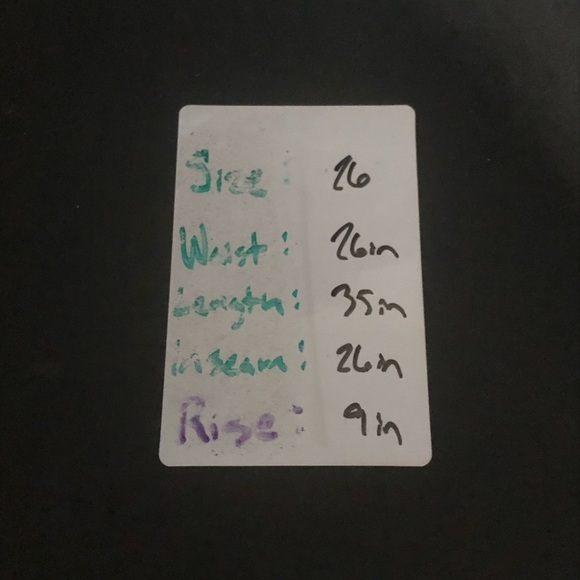 Size: 26
Waist: 26in
Length: 35in
inseam: 26in
Rise: 9in